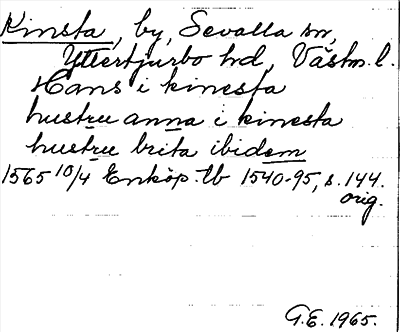 Kinsta, by, Sevalla sn,
Yttertjurbo hd, Västm. l.
Hans i kinesta
hustru anna i kinesta
hustru brita ibidem
1565 10/4 Enköp. tb 1540-95, s. 144.
orig.
G.E. 1965.